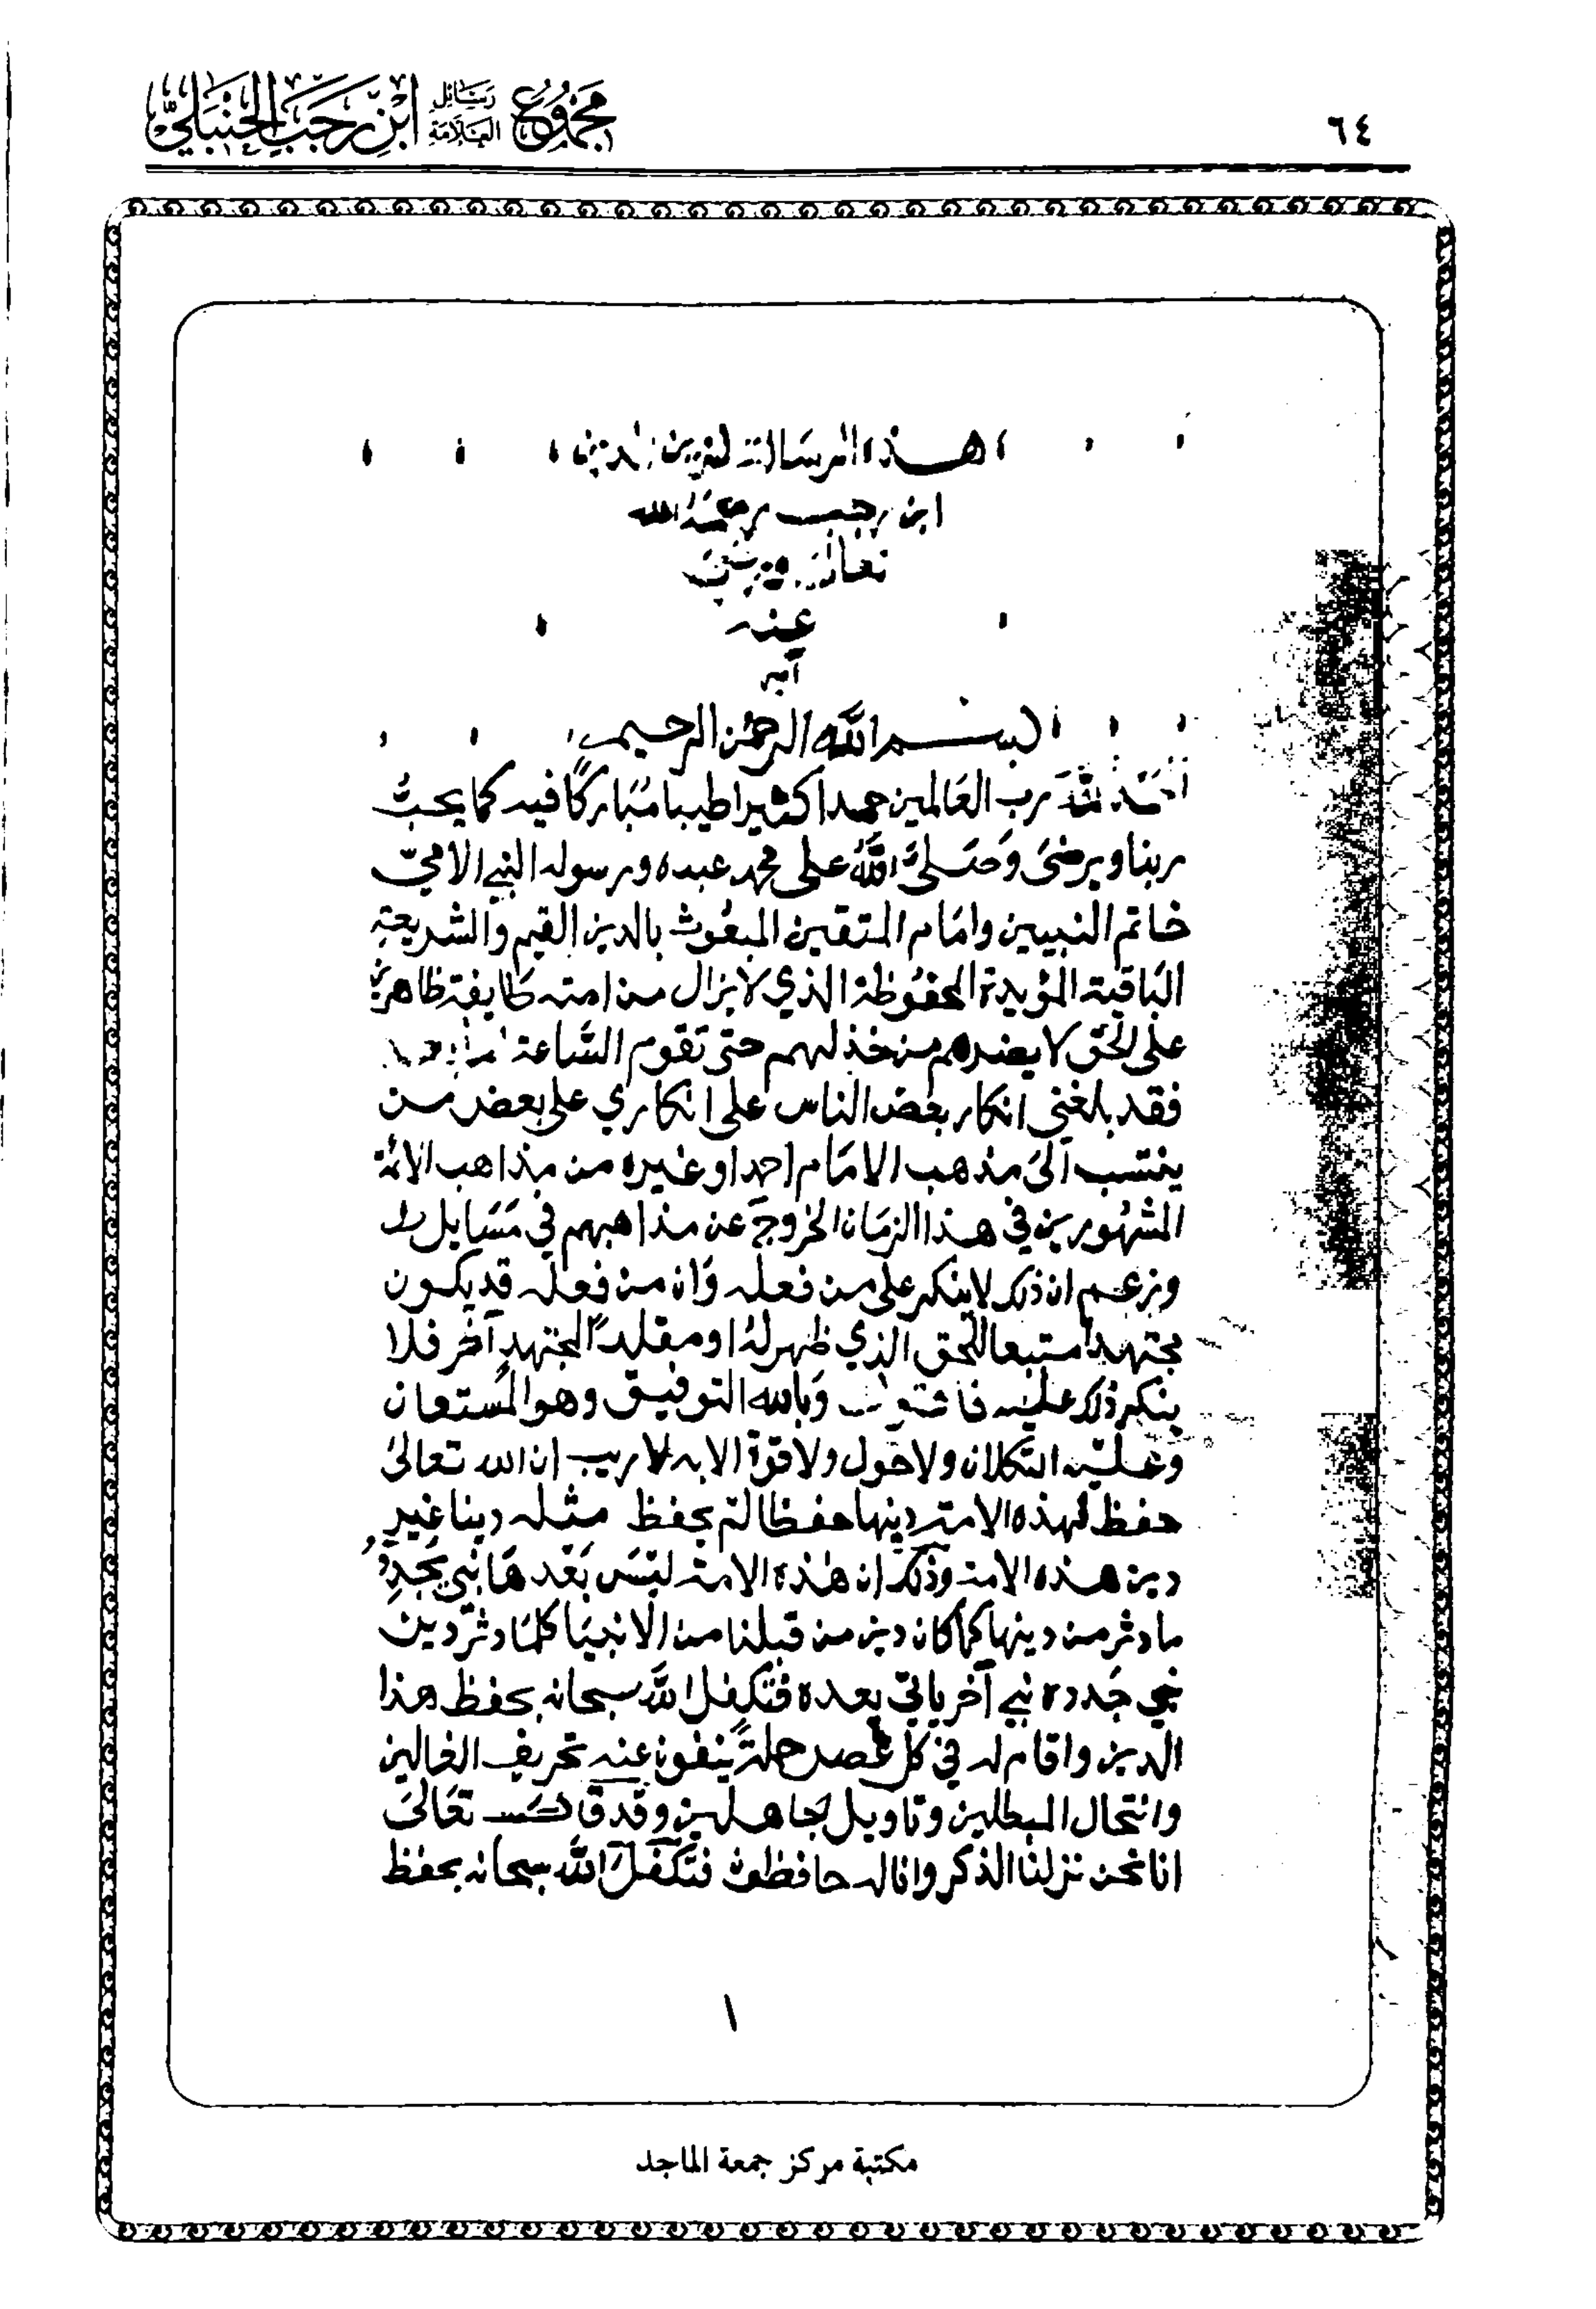 ٦٤
مجموع رسائل العلامة ابن رجب الحنبلي
هذه الرسالة لزين الدين
ابن رجب رحمه الله
تعالى ورضي
عنه
آمين
بسم الله الرحمن الرحيم
الحمد لله رب العالمين حمدا كثيرا طيبا مُبَاركًا فيه كما يحبُّ
ربنا ويرضىَ وَصَلىَ اللهُ على محمد عبده ورسوله النبي الاميّ
خاتم النبيين وامَام المتقين المبعُوث بالدين القيم والشريعة
البَاقية المؤيدة المحفوُظة الذي لا يزال من امته طايفة ظاهرين
على الحق لا يضرهم من خذلهم حتى تقوم السَّاعة اما بعد
فقد بلغني انكار بعض الناس على انكاري على بعض من
ينتسب الىَ مذهب الامَام احمد او غيره من مذاهب الائمة
المشهُورين في هذا الزمَان الخروج عن مذاهبهم في مَسَايل
وزعم ان ذلك لا ينكر على من فعله وَان من فعله قد يكون
مجتهدا متبعا للحق الذي ظهر لهُ او مقلدًا لمجتهدٍ آخر فلا
ينكر ذلك عليه فاقول وَبالله التوفيق وهو المُستعان
وعليه التكلان ولا حَول ولا قوة الا به لا ريب ان الله تعالىَ
حفظ لهذه الامة دينها حفظا لم يحفظ مثله دينا غير
دين هذه الامة وذلك ان هذه الامة ليَس بَعْدهَا نبي يُجَدِدُ
ما دثر من دينها كما كان دين من قبلنا من الانبيَا كلمَا دثر دين
نبي جَدده نبي آخر ياتي بعده فتكفل الله سبحانه بحفظ هذا
الدين واقام له في كل عصر حملةً ينفون عنه تحريف الغالين
وانتحال المبطلين وتاويل الجاهلين وقد قال تعَالىَ
انا نحن نزلنا الذكر وانا له حافظون فتكفلَ الله سبحانه بحفظ
١
مكتبة مركز جمعة الماجد